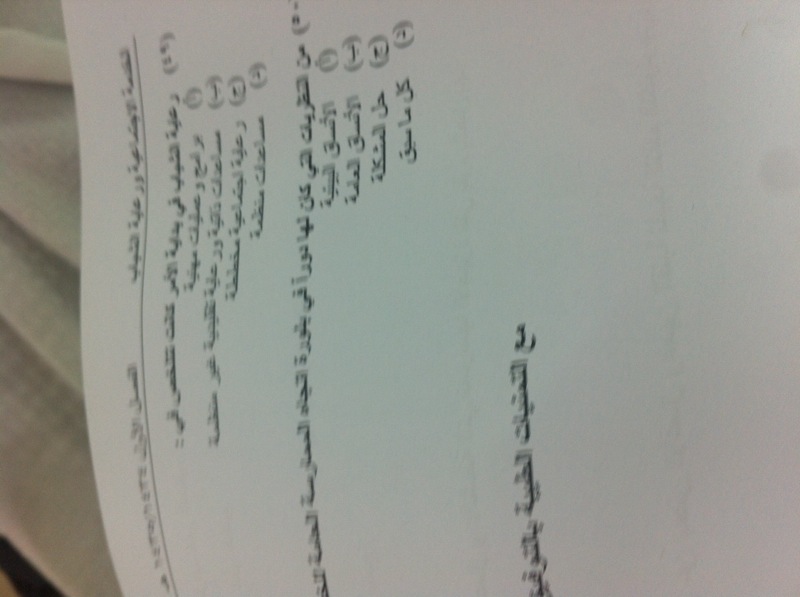 الخدمة الاجتماعية ورعاية الشباب الفصل الأول
(٤٩) رعاية الشباب في بداية الأمر كانت تتلخص في :
(أ) برامج وعمليات مهنية
(ب) مساعدات ذاتية ورعاية تقليدية غير منظمة
(ج) رعاية اجتماعية مخططة
(د) مساعدات منظمة
من النظريات التي كان لها دوراً في بلورة اتجاه الممارسة العامة
(أ) الأنساق البيئية
(ب) الأنساق العامة
(ج) حل المشكلة
(د) كل ما سبق
مع التمنيات الطيبة بالتوفيق